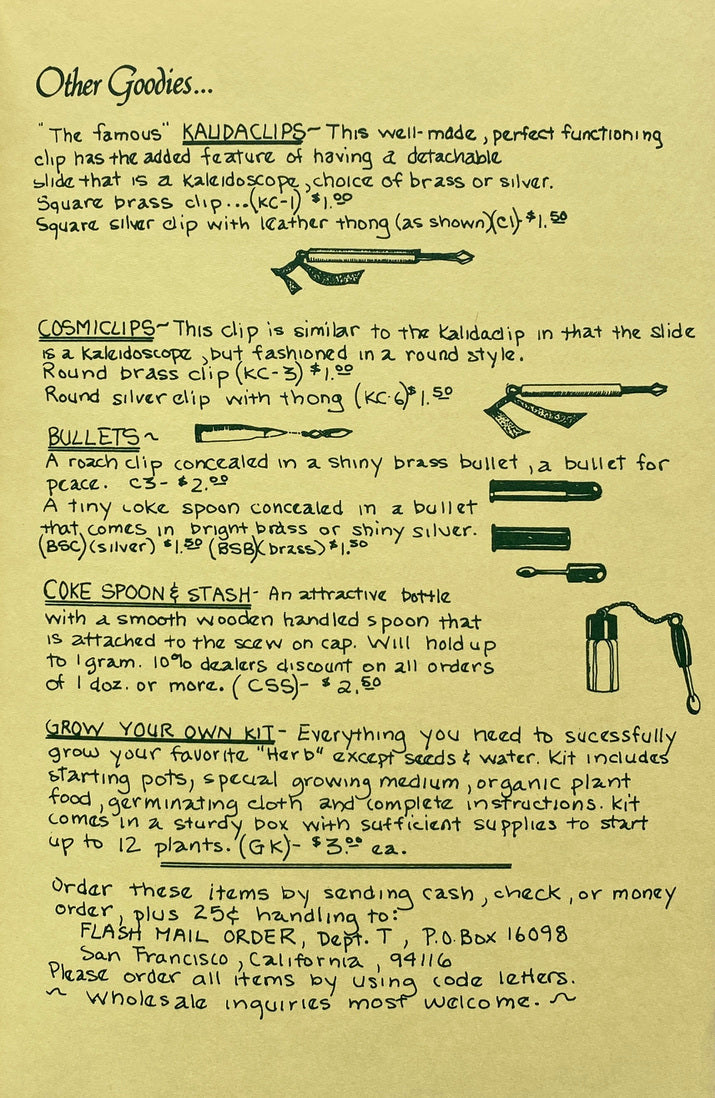 Other Goodies...
"The famous" KALIDACLIPS~ This well-made, perfect functioning
clip has the added feature of having a detachable
slide that is a kaleidoscope, choice of brass or silver.
Square brass clip...(KC-1) $1.00
Square silver clip with leather thong (as shown)(C1) $1.50
COSMICLIPS~ This clip is similar to the Kalidaclip in that the slide
is a kaleidoscope, but fashioned in a round style.
Round brass clip (KC-3) $1.00
Round silver clip with thong (KC-6) $1.50
BULLETS~
A roach clip concealed in a shiny brass bullet, a bullet for
peace. C3- $2.00
A tiny coke spoon concealed in a bullet
that comes in bright brass or shiny silver.
(BSC)(silver) $1.50 (BSB)(brass) $1.50
COKE SPOON & STASH- An attractive bottle
with a smooth wooden handled spoon that
is attached to the scew on cap. Will hold up
to 1 gram. 10% dealers discount on all orders
of 1 doz. or more. (CSS)- $2.50
GROW YOUR OWN KIT- Everything you need to sucessfully
grow your favorite "Herb" except seeds & water. Kit includes
starting pots, special growing medium, organic plant
food, germinating cloth and complete instructions. Kit
comes in a sturdy box with sufficient supplies to start
up to 12 plants. (GK)- $3.00 ea.
Order these items by sending cash, check, or money
order, plus 25¢ handling to:
FLASH MAIL ORDER, Dept. T, P.O. Box 16098
San Francisco, California, 94116
Please order all items by using code letters.
~ Wholesale inquiries most welcome. ~